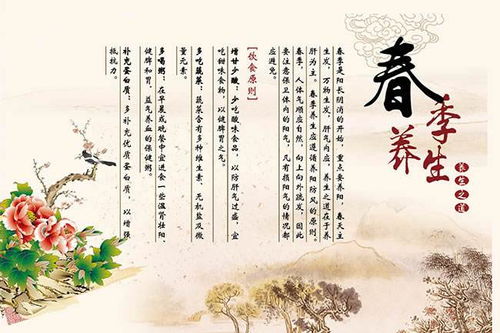 春季养生
春季是阳长阴消的开始，重点要养阳，春天主
生发，万物生发，肝气内应，养生之道在于养
肝为主。春季养生应遵循养阳防风的原则。
春季，人体气顺应自然，向上向外疏发，因此
要注意保卫体内的阳气，凡有损阳气的情况都
应避免。
[饮食原则]
增甘少酸：少吃酸味食品，以防肝气过盛，宜
吃甜味食物，以健脾胃之气。
多吃蔬菜：蔬菜含有多种维生素、无机盐及微
量元素。
多喝粥：在早晨或晚餐中宜进食一些温肾壮阳、
健脾和胃、益气养血的保健粥。
补充蛋白质：多补充优质蛋白质，以增强
抵抗力。